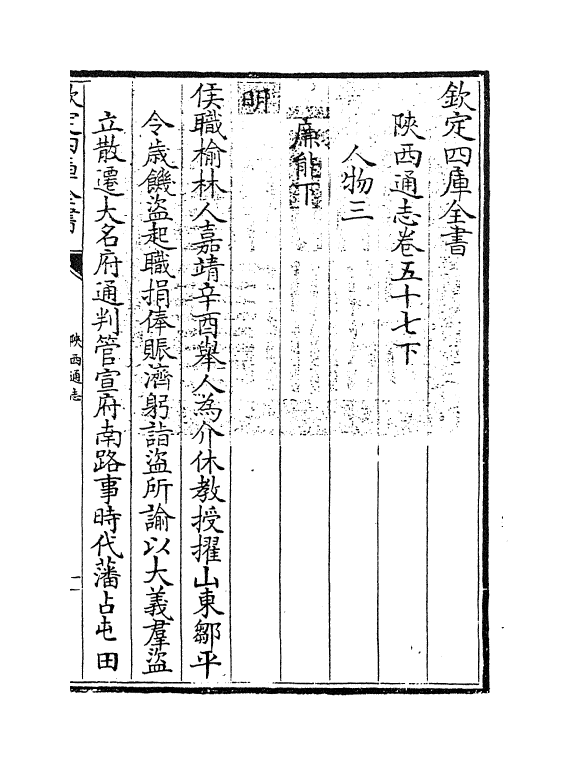 欽定四庫全書
陜西通志卷五十七下
人物三
廉能下
明
侯職榆林人嘉靖辛酉舉人為介休教授擢山東鄒平
令歲饑盜起職捐俸賑濟躬詣盜所諭以大義羣盜
立散遷大名府通判管宣府南路事時代藩占屯田
欽定四庫全書
陜西通志